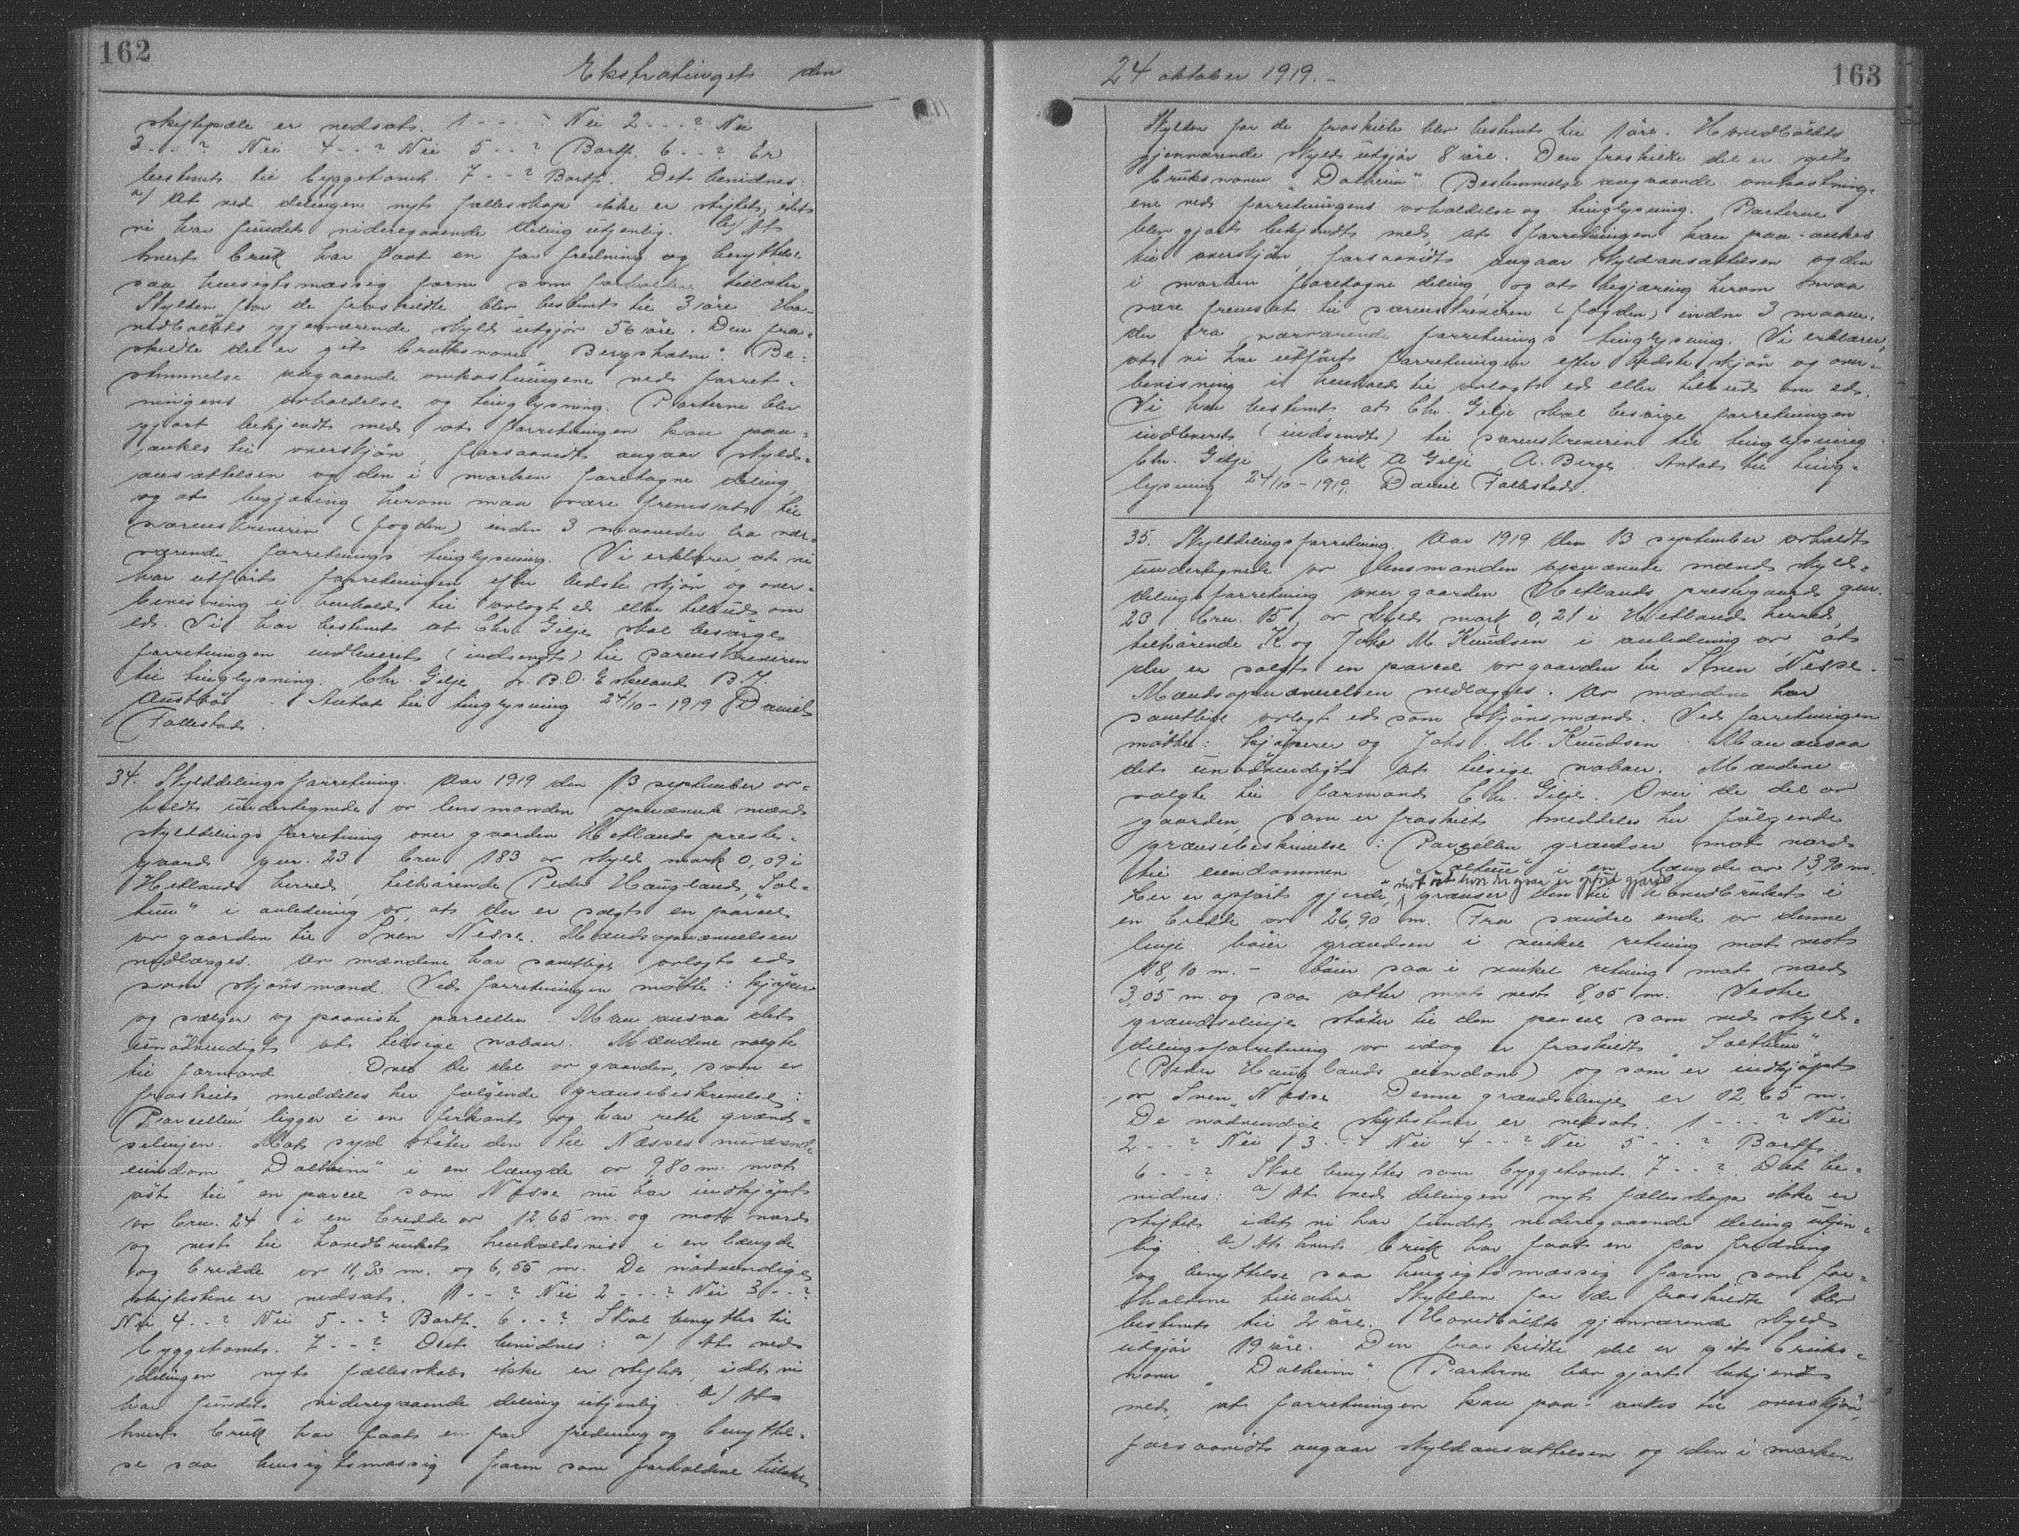 162
Ekstratinget den
skillepæle er nedsat. 1 - - - ? Nei 2 - - ? Nei
3 - - ? Nei 4 - - ? Nei 5 - - ? Bortf. 6 - - ? Er
bestemt til byggetomt. 7 - - ? Bortf. Det bevidnes:
a/ At ved delingen nyt fællesskap ikke er stiftet, idet
vi har fundet videregaaende deling utjenlig. b/ At
hvert bruk har faat en for fredning og benyttelse
saa hensigtsmæssig form som forholdene tillater.
Skylden for de fraskilte blev bestemt til 3 øre. Ho-
vedbølets gjenværende skyld utgjør 56 øre. Den fra-
skilte del er git bruksnavn "Bergsholm". Be-
stemmelse angaaende omkostningene ved forret-
ningens avholdelse og tinglysning. Parterne blev
gjort bekjendt med, at forretningen kan paa-
ankes til overskjøn, forsaavidt angaar skyld-
ansættelsen og den i marken foretagne deling,
og at begjæring herom maa være fremsat til
sorenskriveren (fogden) inden 3 maaneder fra nær-
værende forretnings tinglysning. Vi erklærer, at vi
har utført forretningen efter bedste skjøn og over-
bevisning i henhold til avlagt ed eller tilbud om
ed. Vi har bestemt at Chr. Gilje skal besørge
forretningen indleveret (indsendt) til sorenskriveren
til tinglysning. Chr. Gilje L. B. O. Eskeland B. J.
Austbø - Antat til tinglysning 24/10 - 1919 Daniel
Follestad.
34. Skylddelingsforretning. Aar 1919 den 13 september av-
holdt undertegnede av lensmanden opnævnte mænd
skylddelingsforretning over gaarden Hetlands preste-
gaard gnr. 23 bnr 183 av skyld mark 0,09 i
Hetland herred, tilhørende Peder Haugland, "Sol-
tun" i anledning av, at der er solgt en parcel
av gaarden til Sven Nesse. Mandsopnævnelsen
vedlægges. Av mændene har samtlige avlagt ed
som skjønsmænd. Ved forretningen møtte: kjøper
og sælger og paaviste parcellen. Man ansaa det
unødvendigt at tilsige naboer. Mændene valgte
til formand Over de del av gaarden, som er
fraskilt, meddeles her følgende grænsebeskrivelse:
Parcellen ligger i en firkant og har rette grænd-
selinjer. Mot syd støter den til Nesses nuværende
eiendom "Dalheim" i en længde av 9,80 m. mot
øst til en parcel som Nesse nu har indkjøpt
av bnr. 24 i en bredde av 12,65 m. og mot nord
og vest til hovedbruket henholdsvis i en længde
og bredde av 11,30 m. og 6,55 m. De nødvendige
skillestene er nedsat. 1 - - ? Nei 2 - - - ? Nei 3 - - ?
Nei 4 - - ? Nei 5 - - ? Bortf. 6 - - ? Skal benyttes til
byggetomt. 7 - - ? Det bevidnes: a/ At ved
delingen nyt fællesskab ikke er stiftet, idet vi
har fundet videregaaende deling utjenlig. b/ At
hvert bruk har faat en for fredning og benyttel-
se saa hensigtsmæssig form som forholdene tillater
24 oktober 1919. -
163
Skylden for de fraskilte blev bestemt til 1 øre. Hovedbølets
gjenværende skyld utgjør 8 øre. Den fraskilte del er git
bruksnavn "Dalheim" Bestemmelse angaaende omkostning-
ene ved forretningens avholdelse og tinglysning. Parterne
blev gjort bekjendt med, at forretningen kan paa-ankes
til overskjøn, forsaavidt angaar skyldansættelsen og den
i marken foretagne deling, og at begjæring herom maa
være fremsat til sorenskriveren (fogden) inden 3 maane-
der fra nærværende forretnings tinglysning. Vi erklærer,
at vi har utført forretningen efter bedste skjøn og over-
bevisning i henhold til avlagt ed eller tilbud om ed.
Vi har bestemt at Chr. Gilje skal besørge forretningen
indleveret (indsendt) til sorenskriveren til tinglysning
Chr. Gilje Erik A Gilje A. Berge. Antat til ting-
lysning 24/10 - 1919. Daniel Follestad.
35. Skylddelingsforretning. Aar 1919 den 13 september avholdt
undertegnede av lensmanden opnævnte mænd skyld-
delingsforretning over gaarden Hetlands prestegaard gnr.
23 bnr. 15, av skyld mark 0,21 i Hetland herred,
tilhørende K og Johs M Knudsen i anledning av, at
der er solgt en parcel av gaarden til Sven Nesse.
Mandsopnævnelsen vedlægges. Av mændene har
samtlige avlagt ed som skjønsmænd. Ved forretningen
møtte: kjøperer og Johs. M. Knudsen Man ansaa
det unødvendigt at tilsige naboer. Mændene
valgte til formand Chr. Gilje. Over de del av
gaarden, som er fraskilt meddeles her følgende
grænsebeskrivelse: Parcellen grændser mot nord
til eiendommen "Soltun" i en længde av 13,90 m.
Her er opført gjerde, mot øst hvor der ogsaa er opført gjerde grænser den til hovedbruket i
en bredde av 26,90 m. Fra søndre ende av denne
linje bøier grændsen i vinkel retning mot vest
18,10 m. - bøier saa i vinkel retning mot nord
3,05 m. og saa atter mot vest 8,05 m. Vestre
grændselinje støter til den parcel som ved skyld-
delingsforretning av idag er fraskilt "Soltun"
(Peder Hauglands eiendom) og som er indkjøpt
av Sven Nesse Denne grændselinje er 12,65 m.
De nødvendige skillestener er nedsat. 1 - - - ? Nei
2 - - ? Nei 3 - - ? Nei 4 - - ? Nei 5 - - ? Bortf.
6 - - ? Skal benyttes som byggetomt. 7 - - ? Det be-
vidnes: a/ At ved delingen nyt fællesskap ikke er
stiftet idet vi har fundet videregaaende deling utjen-
lig. b/ At hvert bruk har faat en for fredning
og benyttelse saa hensigtsmæssig form som for-
holdene tillater. Skylden for de fraskilte blev
bestemt til 2 øre. Hovedbølets gjenværende skyld
utgjør 19 øre. Den fraskilte del er git bruks-
navn "Dalheim". Parterne blev gjort bekjendt
med, at forretningen kan paa-ankes til overskjøn,
forsaavidt angaar skyldansættelsen og den i marken